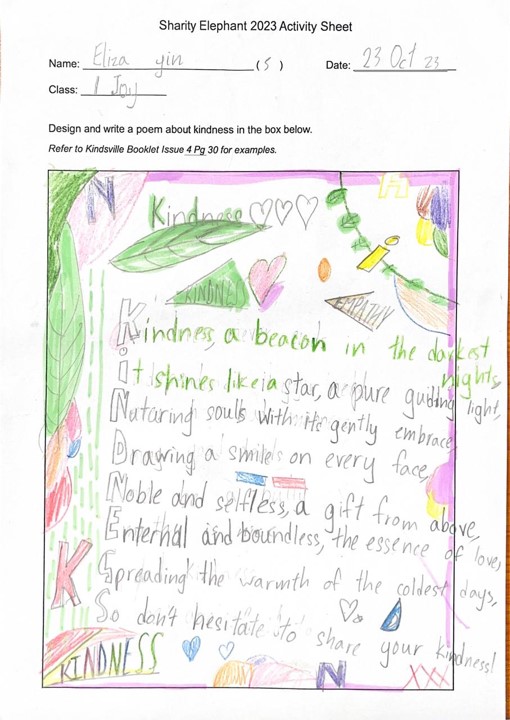 Sharity Elephant 2023 Activity Sheet
Name: Eliza yin (5) Date: 23 Oct 23
Class: 1 Joy
Design and write a poem about kindness in the box below.
Refer to Kindsville Booklet Issue 4 Pg 30 for examples.
N
A
Kindness
KINDNE
EMPATHY
Kindness, a beacon in the darkest
nights,
It shines like a star, a pure guiding light,
Nutaring souls with it's gently embrace,
Drawing a smile on every face,
Noble and selfless, a gift from above,
Enternal and boundless, the essence of love,
Spreading the warmth of the coldest days,
So don't hesitate to share your kindness!
K
KINDNESS
N
XXX